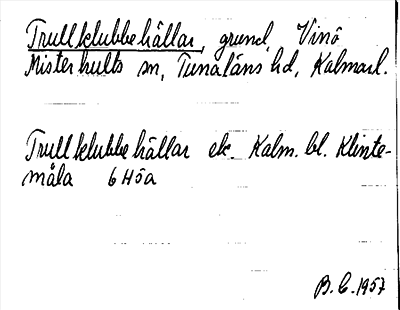 Trullklubbehällar, grund, Vinö
Misterhults sn, Tunaläns hd, Kalmarl.
Trullklubbehällar ek. Kalm. bl. Klinte-
måla 6 H ö a
B.C. 1957